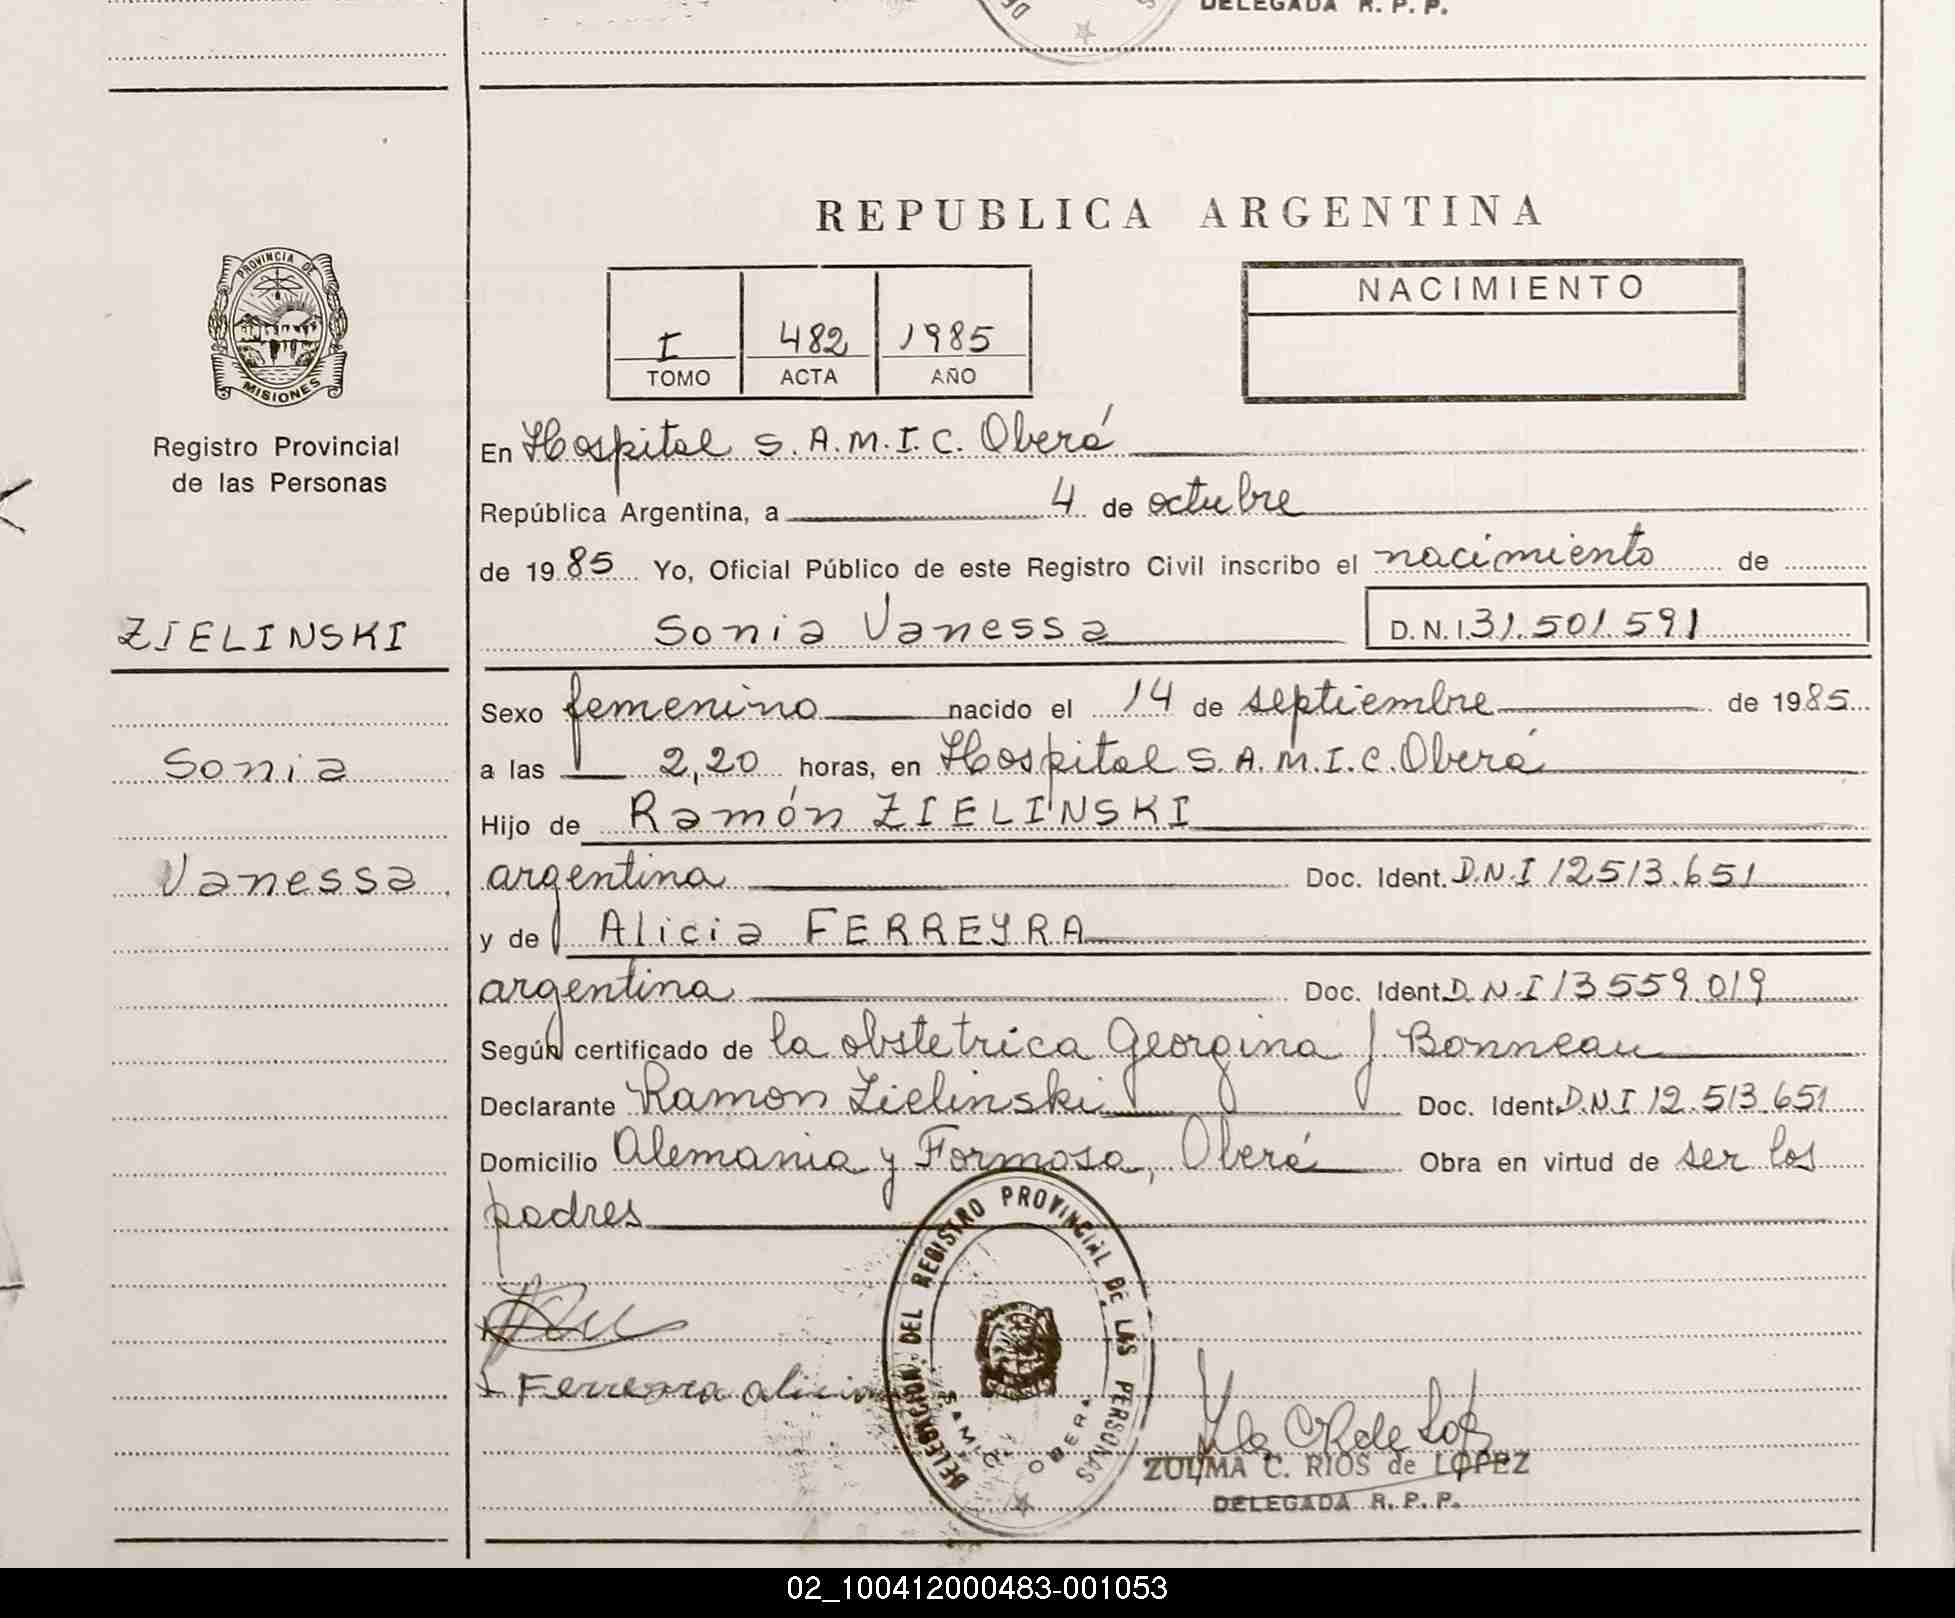 DELEGADA R. P. P.
REPUBLICA ARGENTINA
PROVINCIA DE
MISIONES
Registro Provincial
de las Personas
ZIELINSKI
Sonia
Vanessa
I 482 1985
TOMO ACTA AÑO
NACIMIENTO
En Hospital S.A.M.I.C. Oberá
República Argentina, a 4 de octubre
de 1985 Yo, Oficial Público de este Registro Civil inscribo el nacimiento de
Sonia Vanessa D.N.I. 31.501.591
Sexo femenino nacido el 14 de septiembre de 1985
a las 2,20 horas, en Hospital S.A.M.I.C. Oberá
Hijo de Ramón ZIELINSKI
argentina Doc. Ident. D.N.I 12513.651
y de Alicia FERREYRA
argentina Doc. Ident. D.N.I 13559.019
Según certificado de la obstetrica Georgina J Bonneau
Declarante Ramon Zielinski Doc. Ident. D.N.I 12.513.651
Domicilio Alemania y Formosa, Oberá Obra en virtud de ser los
padres
Ferreyra alicia
DELEGACION DEL REGISTRO PROVINCIAL DE LAS PERSONAS
SAMIC OBERA
ZULMA C. RIOS de LOPEZ
DELEGADA R. P. P.
02_100412000483-001053